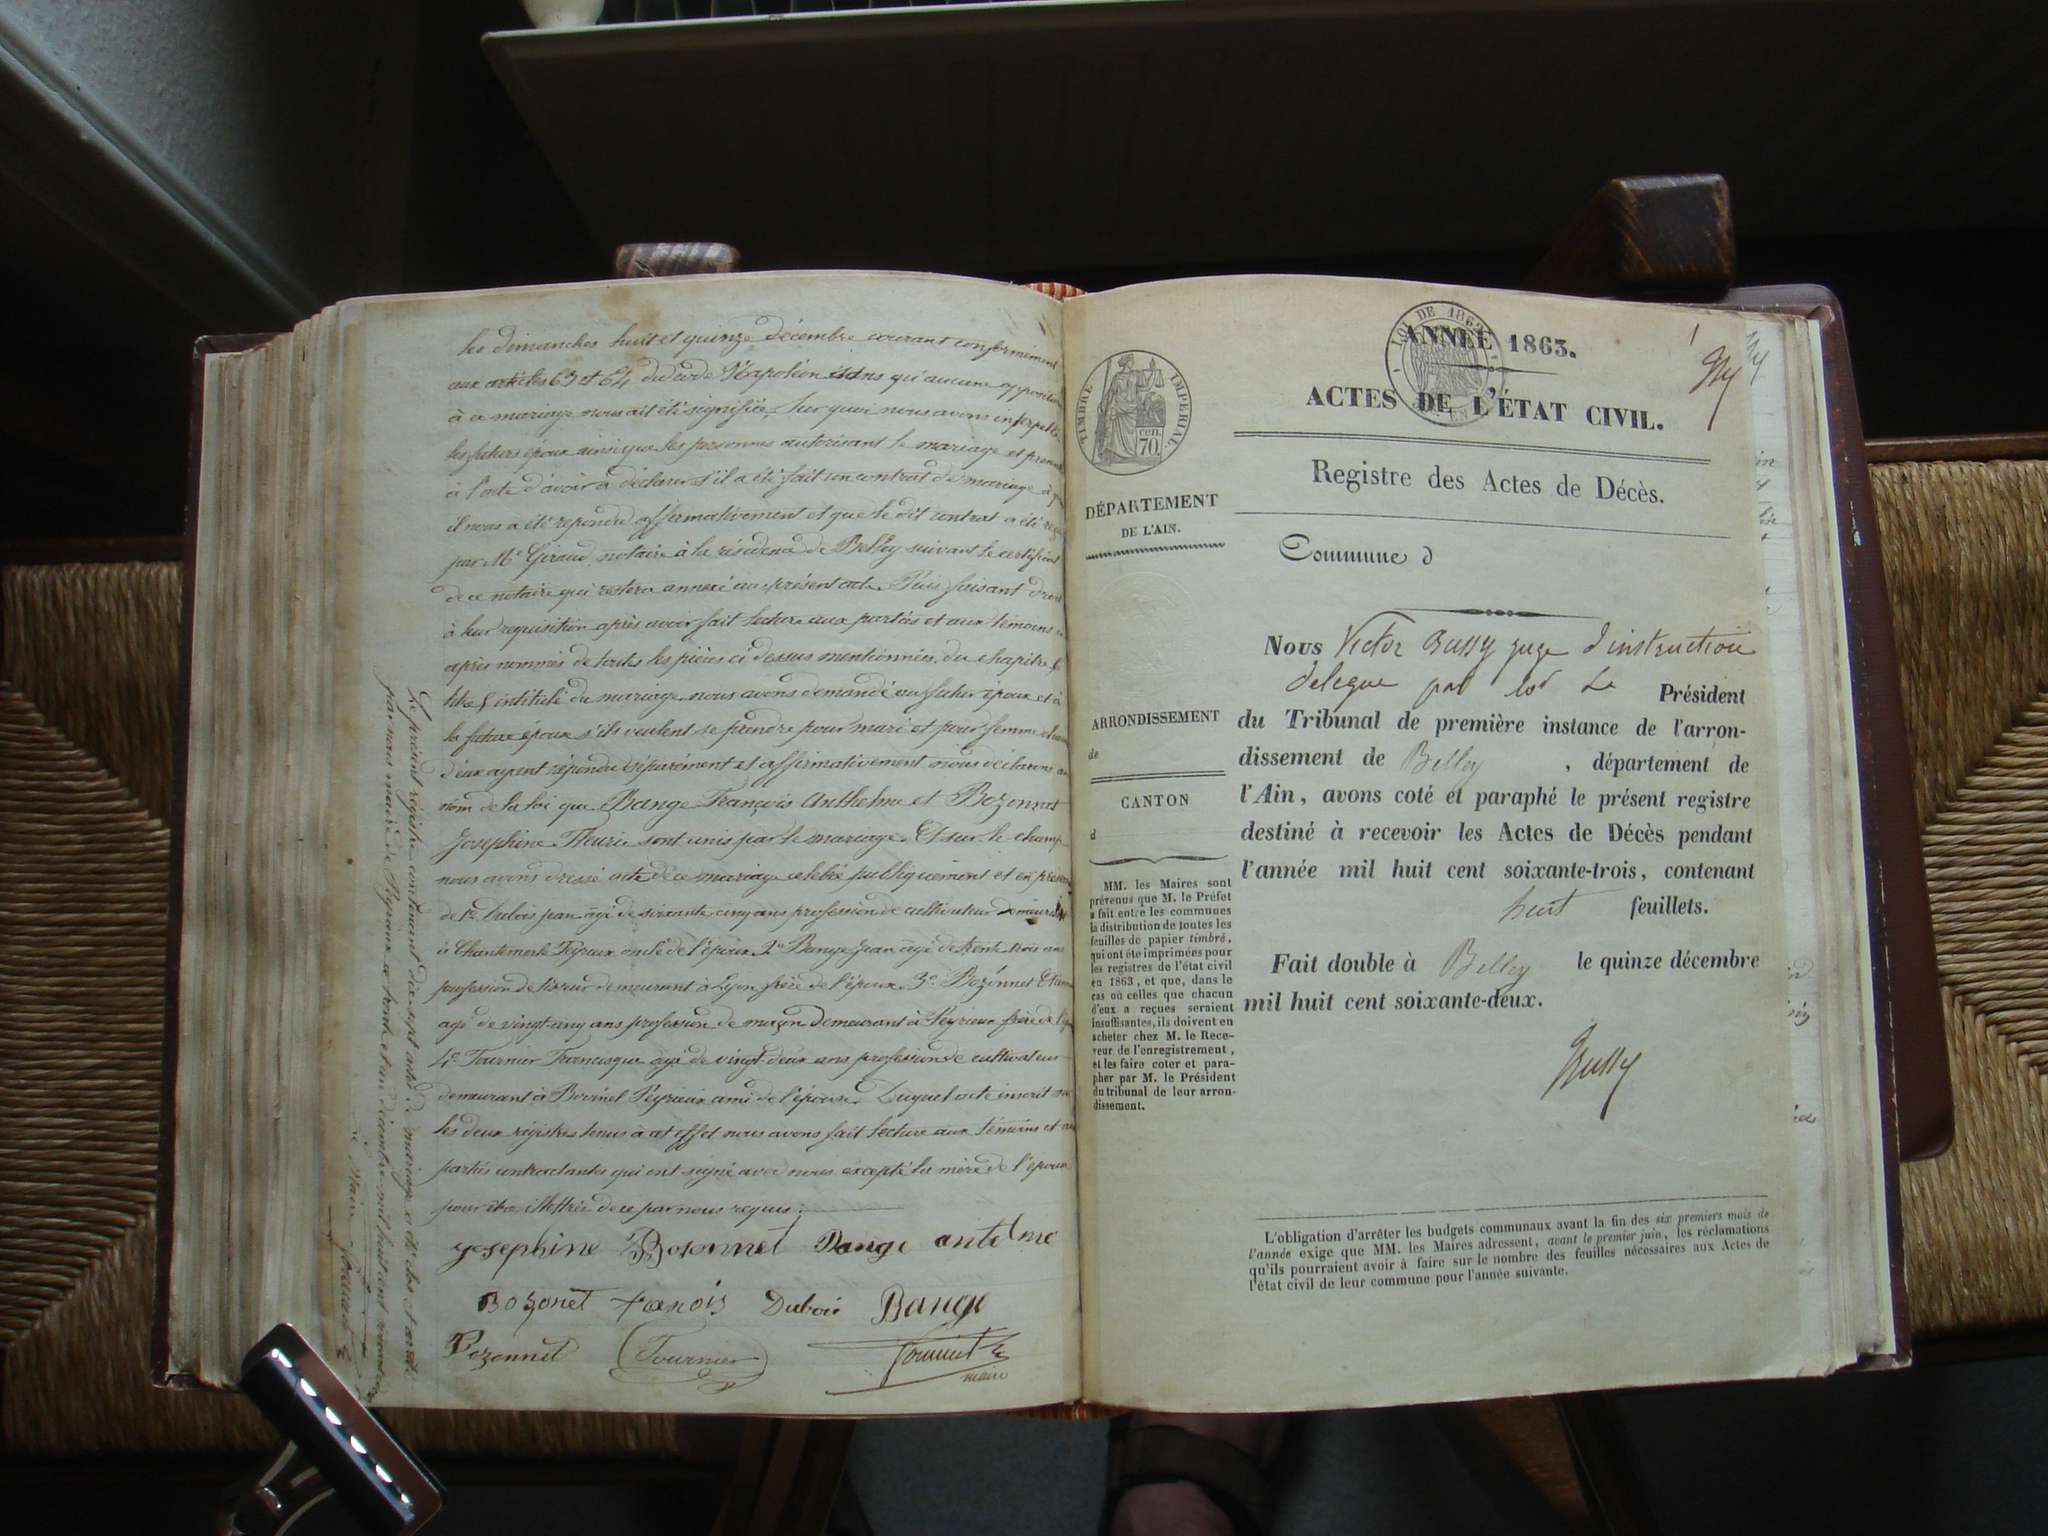 les dimanches huit et quinze décembre courant conformément
aux articles 63 et 64 du code Napoléon sans qu'aucune opposition
à ce mariage nous ait été signifiée, sur quoi nous avons interpellé
les futurs époux ainsi que les personnes autorisant le mariage et
à l'acte d'avoir à déclarer s'il a été fait un contrat de mariage à
il nous a été répondu affirmativement et que le dit contrat a été reçu
par Me Giraud notaire à la résidence de Belley suivant le certificat
de ce notaire qui restera annexé au présent acte. Puis faisant droit
à leur requisition après avoir fait lecture aux parties et aux témoins
après nommés de toutes les pièces ci dessus mentionnées, du chapitre 6
titre 5 intitulé du mariage nous avons demandé au futur époux et à
la future épouse s'ils veulent se prendre pour mari et pour femme
d'eux ayant répondu séparément et affirmativement nous déclarons au
nom de la loi que Bange François Anthelme et Bozonnet
Josephine sont unis par le mariage. Et sur le champ
nous avons dressé acte de ce mariage célébré publiquement et en présence
de 1o Dubois jean agé de soixante cinq ans profession de cultivateur demeurant
à Chantemerle Peyrieux oncle de l'époux 2o Bange jean agé de trente trois ans
profession de tisseur demeurant à Lyon frère de l'époux 3o Bozonnet
agé de vingt-cinq ans profession de maçon demeurant à Peyrieux frère de
4o Fournier Francisque agé de vingt-deux ans profession de cultivateur
demeurant à Bovinel Peyrieux ami de l'épouse. Duquel acte inscrit sur
les deux régistres tenus à cet effet nous avons fait lecture aux témoins et aux
parties contractantes qui ont signé avec nous excepté la mère de l'époux
pour être illettrée de ce par nous requis.
Josephine Bozonnet Bange antelme
Bozonet franois Dubois Bange
Bozonnet Fournier
maire
Le présent régistre contenant dix sept actes de mariage a été clos et arrêté
par nous maire de Peyrieux ce trente et un décembre mil huit cent
Le Maire
TIMBRE IMPÉRIAL.
cen.
70
DÉPARTEMENT
DE L'AIN.
ARRONDISSEMENT
de
CANTON
d
MM. les Maires sont
prévenus que M. le Préfet
a fait entre les communes
la distribution de toutes les
feuilles de papier timbré,
qui ont été imprimées pour
les registres de l'état civil
en 1863, et que, dans le
cas où celles que chacun
d'eux a reçues seraient
insuffisantes, ils doivent en
acheter chez M. le Rece-
veur de l'enregistrement,
et les faire coter et para-
pher par M. le Président
du tribunal de leur arron-
dissement.
LOI DE 1862
ANNÉE 1863.
ACTES DE L'ÉTAT CIVIL.
Registre des Actes de Décès.
Commune d
Nous Victor Bussy juge d'instruction
delegue par Le Président
du Tribunal de première instance de l'arron-
dissement de Belley, département de
l'Ain, avons coté et paraphé le présent registre
destiné à recevoir les Actes de Décès pendant
l'année mil huit cent soixante-trois, contenant
huit feuillets.
Fait double à Belley le quinze décembre
mil huit cent soixante-deux.
Bussy
L'obligation d'arrêter les budgets communaux avant la fin des six premiers mois de
l'année exige que MM. les Maires adressent, avant le premier juin, les réclamations
qu'ils pourraient avoir à faire sur le nombre des feuilles nécessaires aux Actes de
l'état civil de leur commune pour l'année suivante.